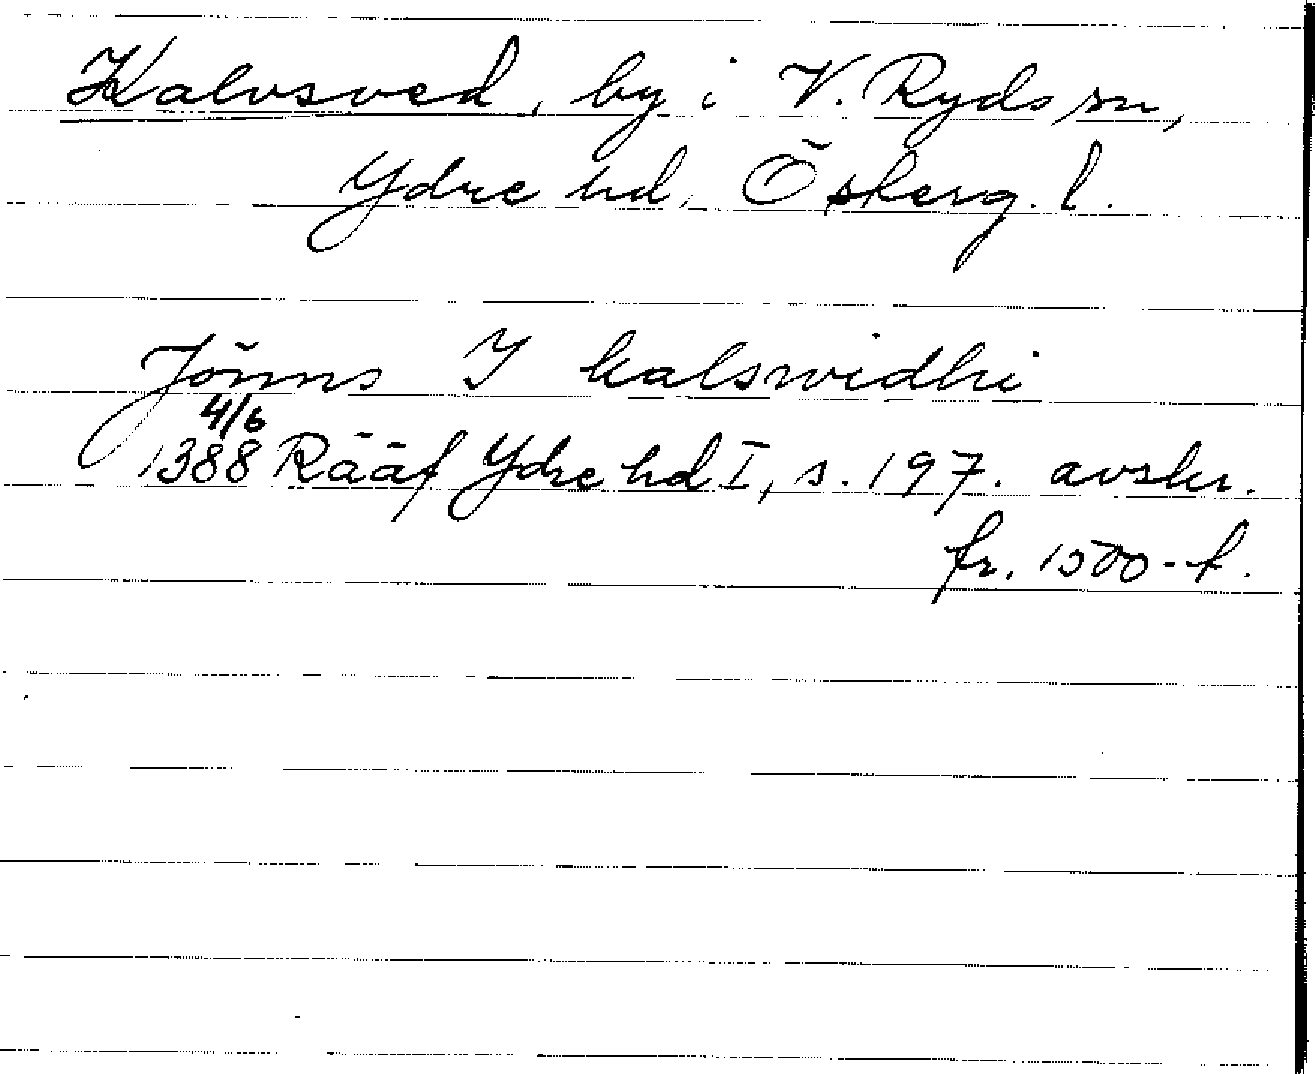 Kalvsved, by i V. Ryds sn,
Ydre hd, Österg. l.
Jönns I kalswidhi
4/6
1388 Rääf Ydre hd I, s. 197. avskr.
fr. 1500-t.